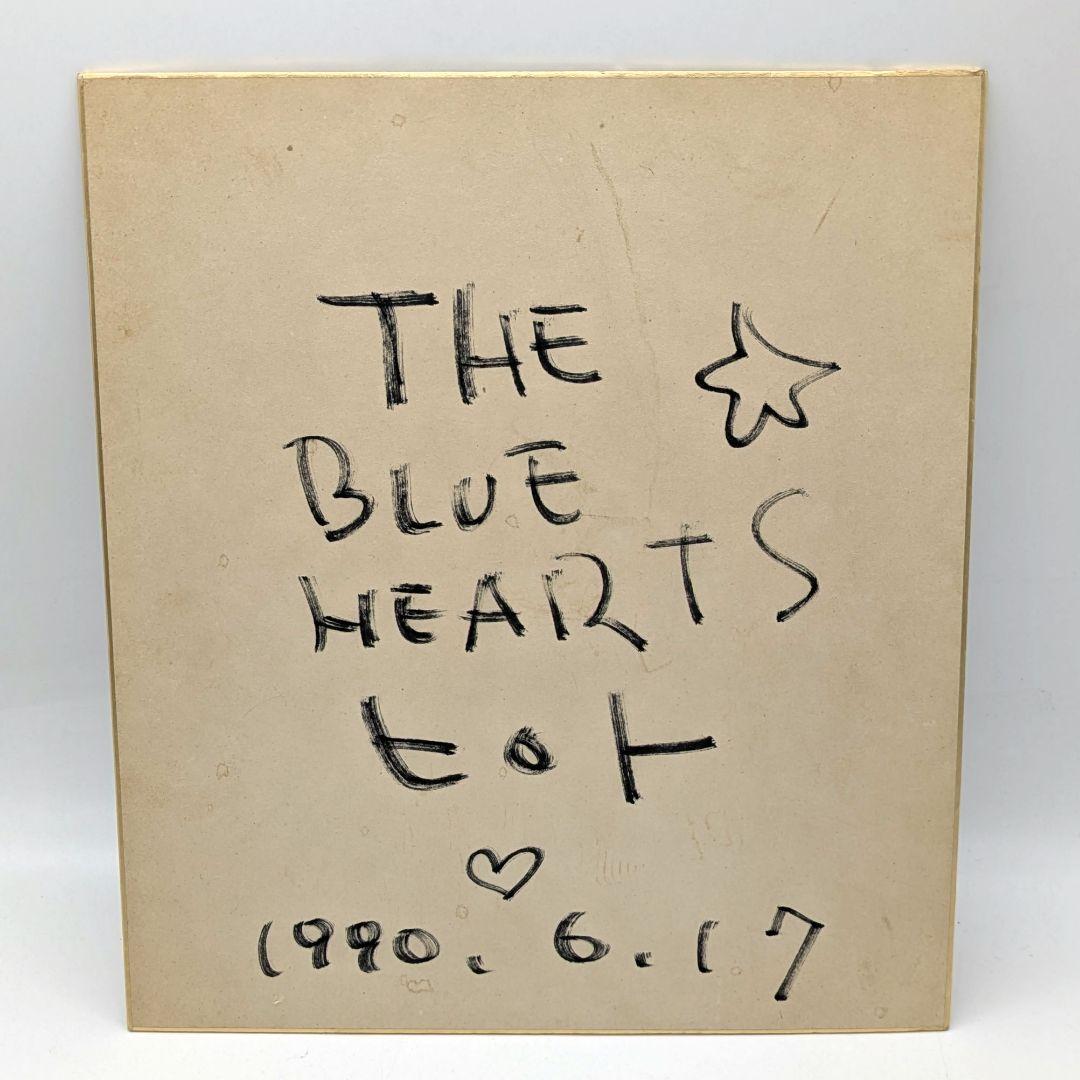 THE
BLUE
HEARTS
ヒロト
1990.6.17